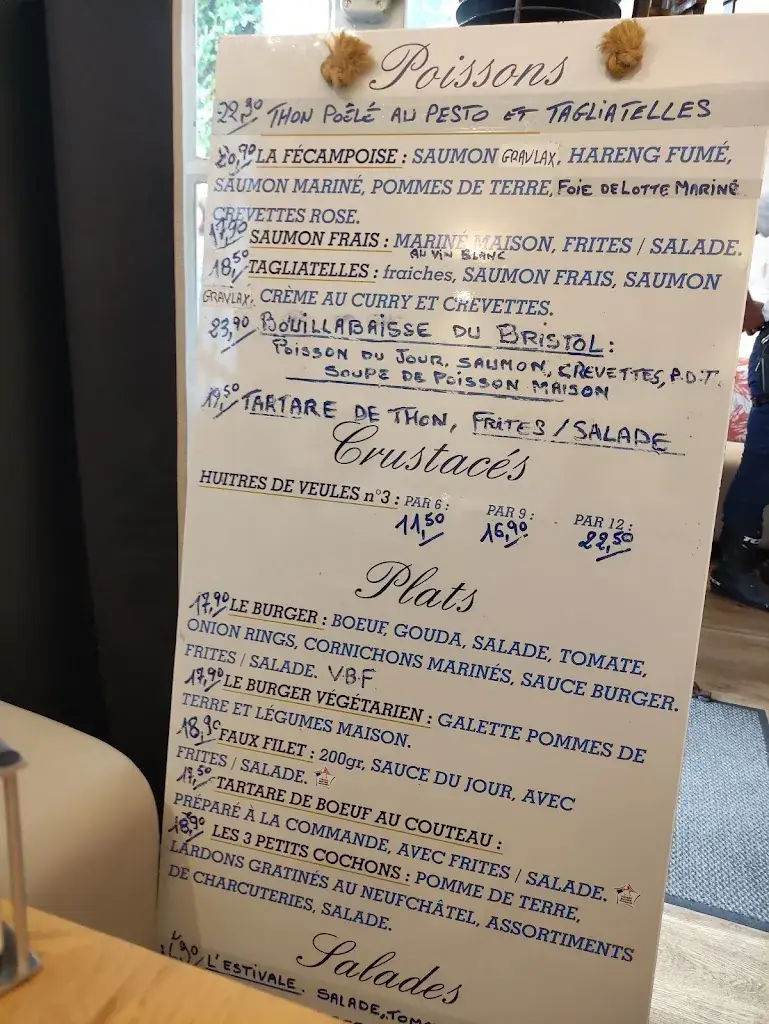 Poissons
22,90 THON POÊLÉ AU PESTO ET TAGLIATELLES
20,90 LA FÉCAMPOISE : SAUMON GRAVLAX, HARENG FUMÉ,
SAUMON MARINÉ, POMMES DE TERRE, FOIE DE LOTTE MARINÉ
CREVETTES ROSE.
17,90 SAUMON FRAIS : MARINÉ MAISON, FRITES / SALADE.
AU VIN BLANC
18,50 TAGLIATELLES : fraiches, SAUMON FRAIS, SAUMON
GRAVLAX, CRÈME AU CURRY ET CREVETTES.
23,90 BOUILLABAISSE DU BRISTOL :
POISSON DU JOUR, SAUMON, CREVETTES, P.D.T.
SOUPE DE POISSON MAISON
19,50 TARTARE DE THON, FRITES / SALADE
Crustacés
HUITRES DE VEULES n°3 : PAR 6 : PAR 9 : PAR 12 :
11,50 16,90 22,50
Plats
17,90 LE BURGER : BOEUF, GOUDA, SALADE, TOMATE,
ONION RINGS, CORNICHONS MARINÉS, SAUCE BURGER.
FRITES / SALADE. VBF
17,90 LE BURGER VÉGÉTARIEN : GALETTE POMMES DE
TERRE ET LÉGUMES MAISON.
18,90 FAUX FILET : 200gr, SAUCE DU JOUR, AVEC
FRITES / SALADE.
TARTARE DE BOEUF AU COUTEAU :
PRÉPARÉ À LA COMMANDE, AVEC FRITES / SALADE.
18,90 LES 3 PETITS COCHONS : POMME DE TERRE,
LARDONS GRATINÉS AU NEUFCHÂTEL, ASSORTIMENTS
DE CHARCUTERIES, SALADE.
Salades
L'ESTIVALE. SALADE,